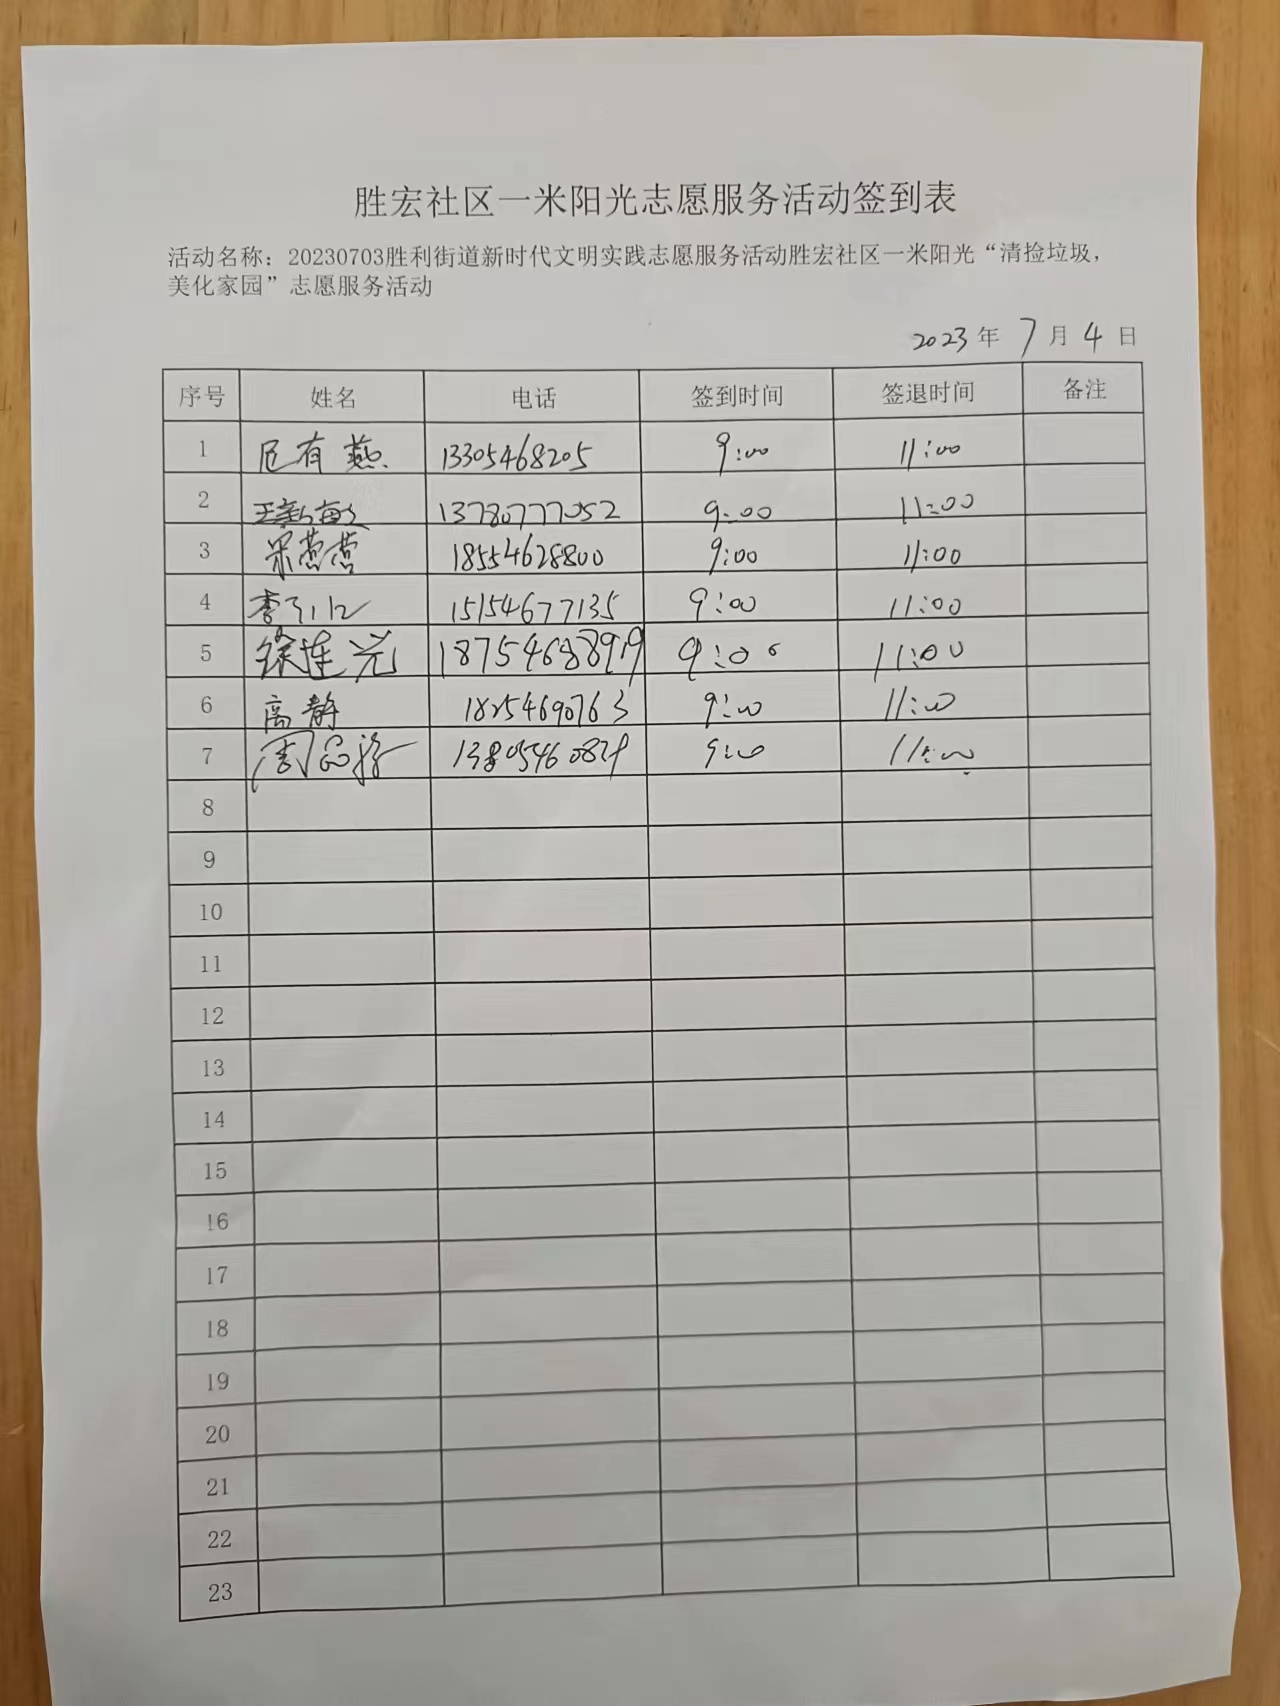 胜宏社区一米阳光志愿服务活动签到表
活动名称：20230703胜利街道新时代文明实践志愿服务活动胜宏社区一米阳光“清捡垃圾，
美化家园”志愿服务活动
2023年 7月 4日
序号 姓名 电话 签到时间 签退时间 备注
1 有燕 13305468205 9:00 11:00
2 王新敏 13780777052 9:00 11:00
3 营营 18554628800 9:00 11:00
4 李 15154677135 9:00 11:00
5 徐连光 9:00 11:00
6 高静 18254690763 9:00 11:00
7 周 9:00 11:00
8
9
10
11
12
13
14
15
16
17
18
19
20
21
22
23